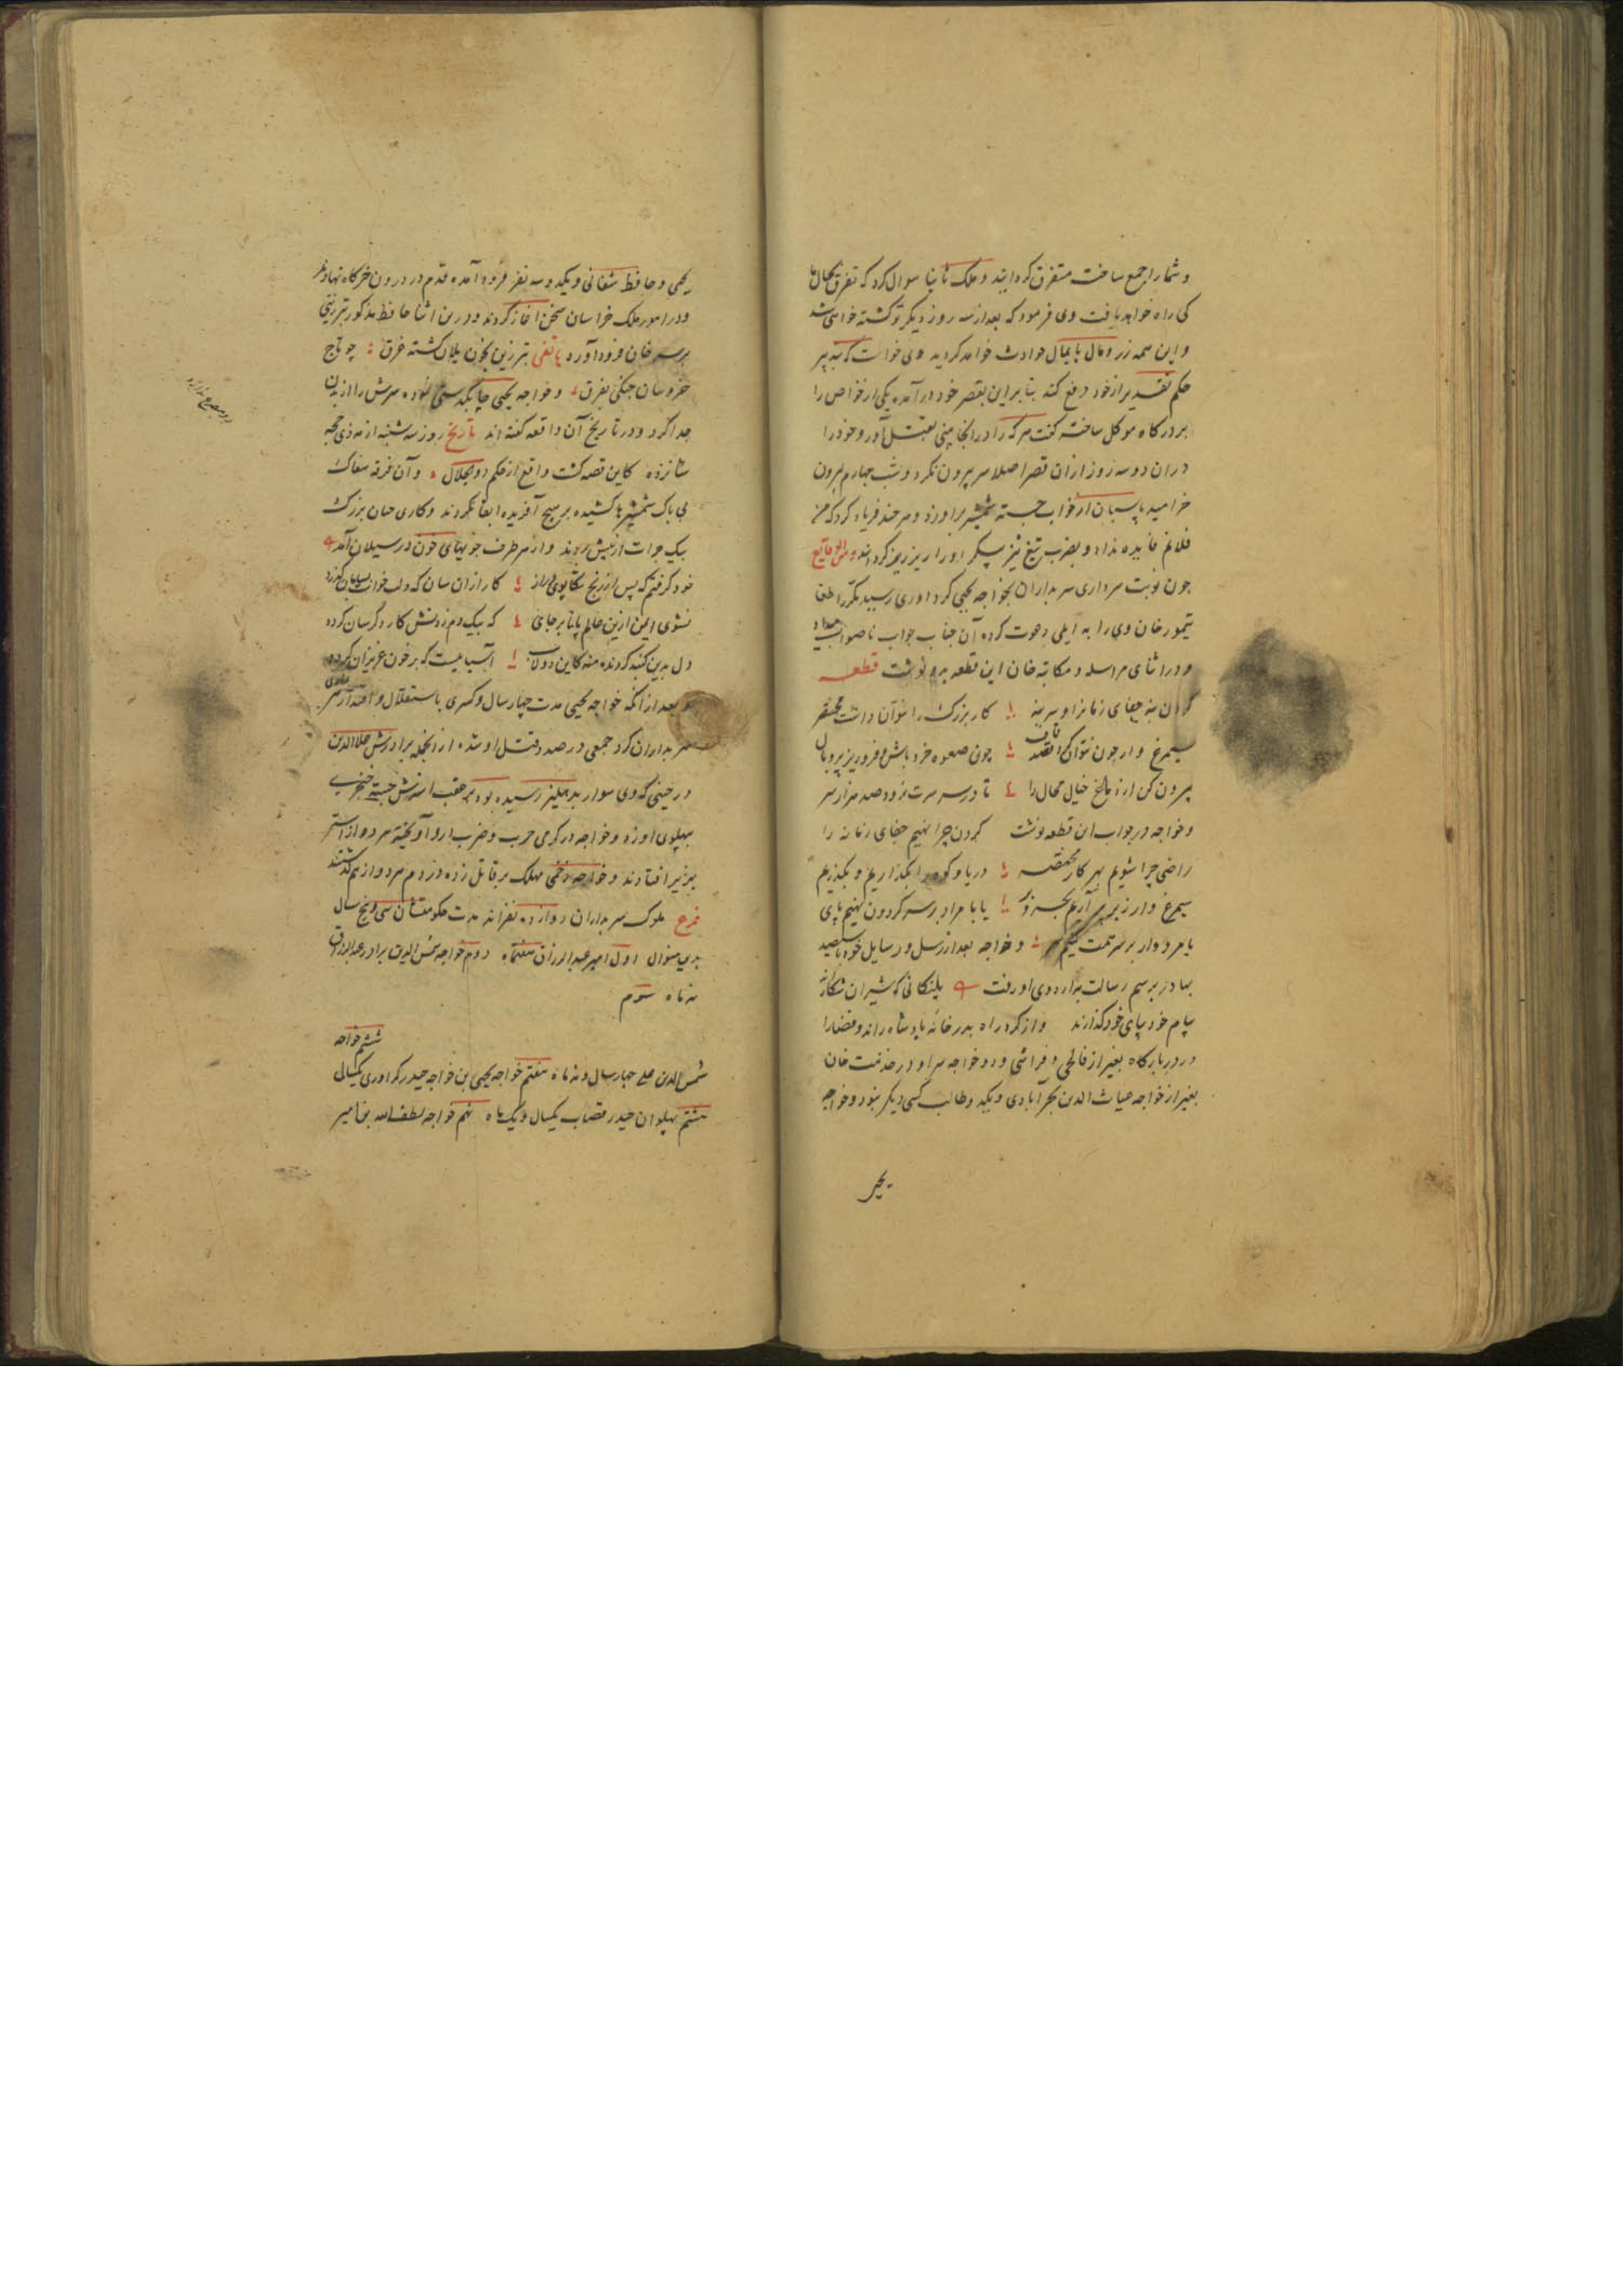 و شما را جمع ساخت متفرق گردانید و ملک ثانیا سوال کرد که تفرق بحال ما
کی راه خواهد یافت وی فرمود که بعد از سه روز دیگر تو کشته خواهی شد
و این همه زر و مال پایمال حوادث خواهد کردید وی خواست که بتدبیر
حکم تقدیر از خود دفع کند بنابراین بقصر خود در آمده یکی از خواص را
بر درکاه موکل ساخته کفت هر که را در انجا بینی بقتل آور و خود را
دران دو سه روز ازان قصر اصلا سر بیرون نکرد و شب چهارم بیرون
خرامید پاسبان از خواب جسته شمشیر براو زد و هر چند فریاد کرد که من
فلانم فایده نداد و بضرب تیغ تیز پیکر او را ریز ریز کردانید و من الوقایع
چون نوبت سرداری سربداران بخواجه یحیی کراوری رسید مکرر طغا
تیمور خان وی را به ایلی دعوت کرده آن جناب جواب ناصواب میداد
و در اثنای مراسله و مکاتبه خان این قطعه بدو نوشت قطعه
کردن بنه جفای زمانرا و سر مپیچ کار بزرک را نتوان داشت مختصر
سیمرغ وار چون نتوان کرد قصد قاف چون صعوه خرد باش و فرو ریز پر و بال
بیرون کن از دماغ خیال محال را تا در سر سرت نرود صد هزار سر
و خواجه در جواب این قطعه نوشت کردن چرا نهیم جفای زمانه را
راضی چرا شویم بهر کار مختصر دریا و کوه را بگذاریم و بگذریم
سیمرغ وار زیر پر آریم بحر و بر یا با مراد بر سر کردون نهیم پای
یا مردوار بر سر همت کنیم سر و خواجه بعد از رسل و رسایل خود با سیصد
بهادر برسم رسالت باردوی او رفت پلنکانی که شیران شکارند
پیام خود بپای خود کذارند و از کرد راه بدرخانه پادشاه راند و قضا را
در در بارکاه بغیر از قالجی و فراشی و دو خواجه سرا و در خدمت خان
بغیر از خواجه غیاث الدین بحرآبادی و یکد و طالب کسی دیکر نبود و خواجه
یحیی
یحیی و حافظ شغانی و یکد و سه نفر فرود آمده قدم در درون خرکاه نهادند
و در امور ملک خراسان سخن آغاز کردند و درین اثنا حافظ مذکور تبرزینی
بر سر خان فرود آورد هاتفی تبرزین بخون یلان کشته غرق چو تاج
خروسان جنکی بفرق و خواجه یحیی چابکدستی نموده سرش را از تن
جدا کرد و در تاریخ آن واقعه کفته اند تاریخ روز سه شنبه از مه ذی حجه
شانزده کاین قصه کشت واقع از حکم ذوالجلال و آن فرقه سفاک
بی باک شمشیرها کشیده بر هیچ آفریده ابقا نکردند و کاری چنان بزرک
بیک جرات از پیش بردند و از هر طرف جویهای خون در سیلان آمد
خود کرفتم که پس از رنج تکاپوی دراز کار ازان سان که دلت خواست بسامان کردد
نشوی ایمن ازین عالم پا نا برجای که بیک دم زدنش کار دکرسان کردد
دل بدین کنبد کردنده منه کاین دولاب آسیاییست که بر خون عزیزان کردد
و بعد از انکه خواجه یحیی مدت چهار سال و کسری باستقلال و اقتدار سر
سربداران کرد جمعی در صدد قتل او شده از انجمله برادرش علاالدین
در حینی که وی سوار بدهلیز رسیده بود بر عقب استرش جسته خنجری
بپهلوی او زد و خواجه در کرمی حرب و ضرب ارو آویخته هر دو از استر
بزیر افتادند و خواجه زخمی مهلک بر قاتل زده در دم هر دو از هم کذشتند
فرع ملوک سربداران دوازده نفراند مدت حکومتشان سی و پنج سال
بدین منوال اول امیر عبدالرزاق هفتماه دوم خواجه شمس الدین برادر عبدالرزاق
نه ماه سوم
ششم خواجه
شمس الدین علی چهار سال و نه ماه هفتم خواجه یحیی بن خواجه حیدر کراوری یکسال
هشتم پهلوان حیدر قصاب یکسال و یک ماه نهم خواجه لطف الله بن امیر